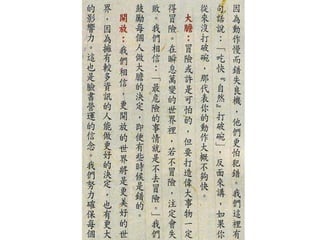 因為動作慢而錯失良機,他們更怕犯錯。我們這裡有
句話說:「吃快『自然』打破碗」,反面來講,如果你
從來沒打破碗,那代表你的動作大概不夠快。
大膽:冒險或許是可怕的,但要打造偉大事物一定
得冒險。在瞬息萬變的世界裡,若不冒險,注定會失
敗。我們相信:「最危險的事情就是不去冒險。」我們
鼓勵每個人做大膽的決定,即便有些時候是錯的。
開放:我們相信,更開放的世界將是更美好的世
界,因為擁有較多資訊的人能做更好的決定,也有更大
的影響力,這也是臉書營運的信念。我們努力確保每個